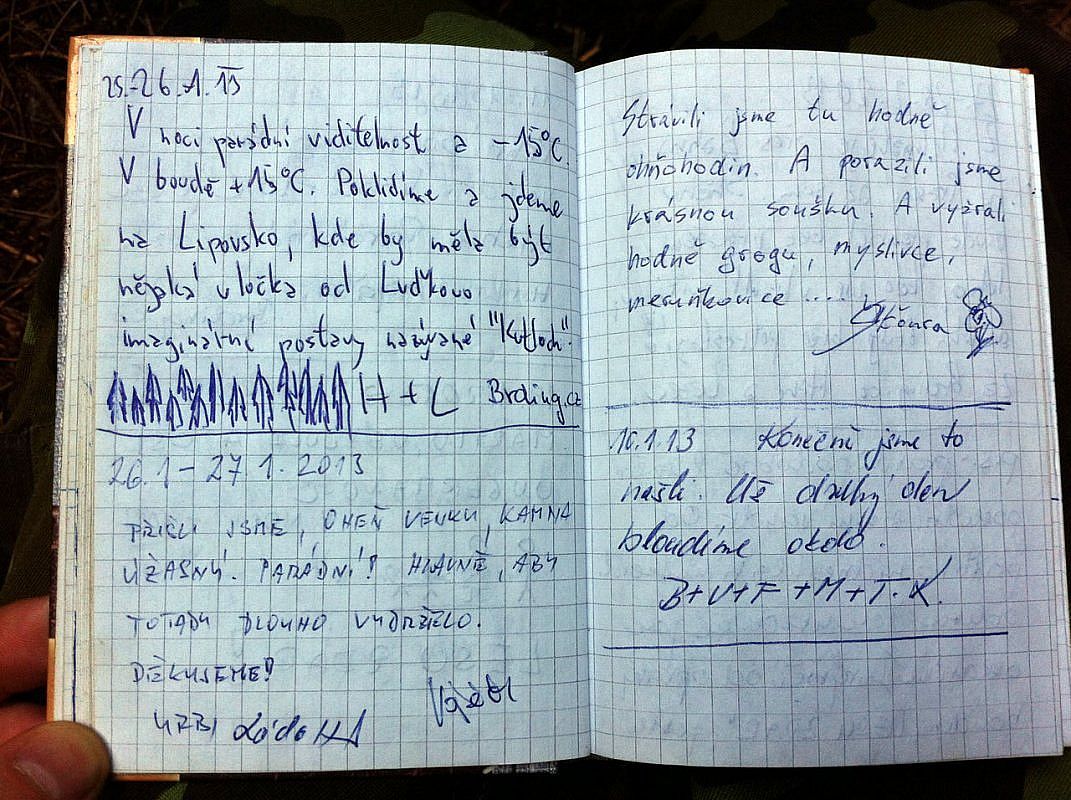 25.-26.1.13
V noci parádní viditelnost a -15°C.
V boudě +15°C. Poklidíme a jdeme
na Lipovsko, kde by měla být
nějaká vločka od Luďkovo
imaginární postavy nazývané
H + L Brding.cz
26.1 - 27.1.2013
PŘIŠLI JSME, OHEŇ VENKU, KAMNA
ÚŽASNÝ. PARÁDNÍ! HLAVNĚ, ABY
TOTADY DLOUHO VYDRŽELO.
DĚKUJEME!
Strávili jsme tu hodně
ohňohodin. A porazili jsme
krásnou soušku. A vyžrali
hodně grogu, myslivce,
meruňkovice ....
10.1.13 Konečně jsme to
našli. Už druhý den
bloudíme okolo.
B+V+F+M+T.K.